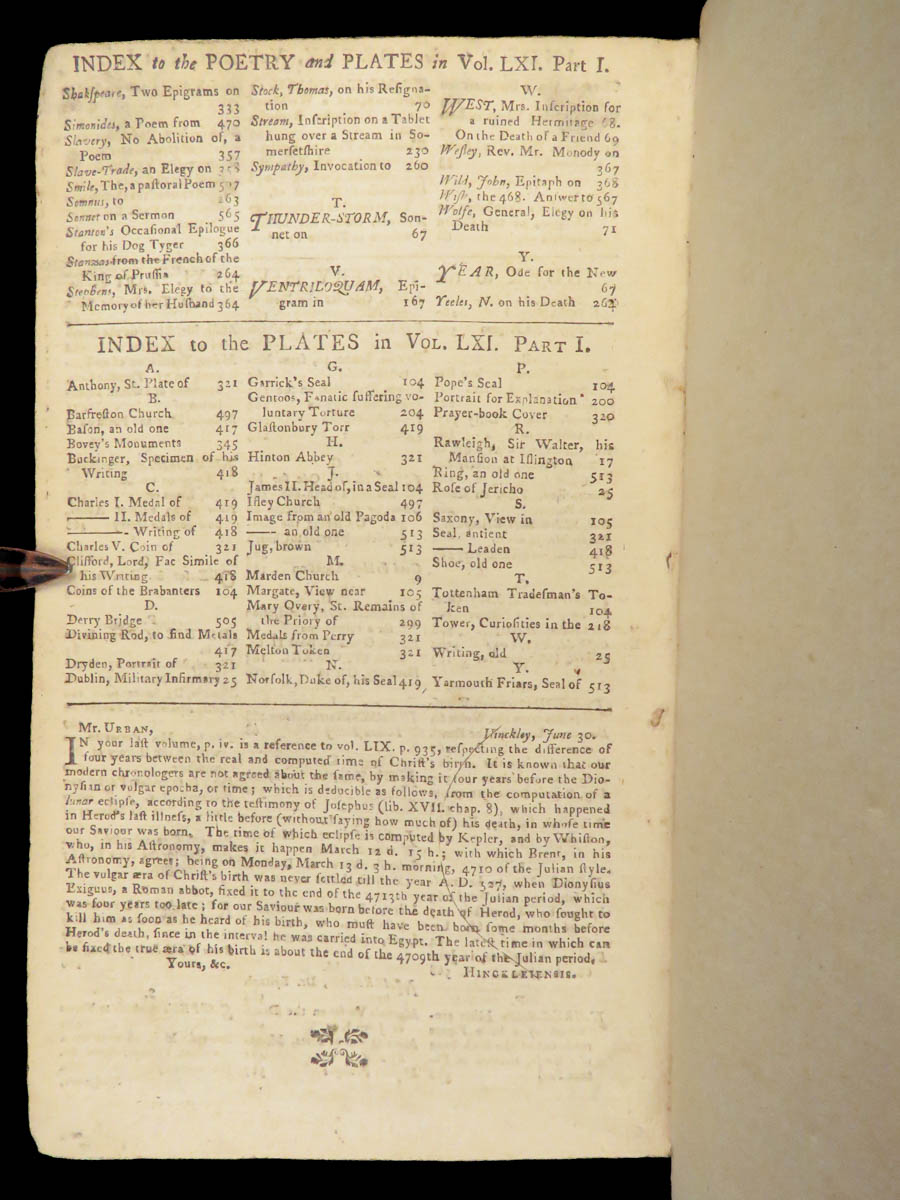 INDEX to the POETRY and PLATES in Vol. LXI. Part I.
Shakſpeare, Two Epigrams on
333
Simonides, a Poem from 470
Slavery, No Abolition of, a
Poem 357
Slave-Trade, an Elegy on
Smile, The, a paſtoral Poem
Somnus, to 263
Sonnet on a Sermon 565
Stanton's Occaſional Epilogue
for his Dog Tyger 366
Stanzas from the French of the
King of Pruſſia 264
Stephens, Mrs. Elegy to the
Memory of her Huſband 364
Stock, Thomas, on his Reſigna-
tion 70
Stream, Inſcription on a Tablet
hung over a Stream in So-
merſetſhire 230
Sympathy, Invocation to 260
T.
THUNDER-STORM, Son-
net on 67
V.
VENTRILOQUAM, Epi-
gram in 167
W.
WEST, Mrs. Inſcription for
a ruined Hermitage 68.
On the Death of a Friend 69
Weſley, Rev. Mr. Monody on
367
Wild, John, Epitaph on 368
Wiſh, the 468. Anſwer to 567
Wolfe, General, Elegy on his
Death 71
Y.
YEAR, Ode for the New
67
Yeeles, N. on his Death 264
INDEX to the PLATES in VOL. LXI. PART I.
A.
Anthony, St. Plate of 321
B.
Barfreſton Church 497
Baſon, an old one 417
Bovey's Monuments 345
Buckinger, Specimen of his
Writing 418
C.
Charles I. Medal of 419
—— II. Medals of 419
——— Writing of 418
Charles V. Coin of 321
Clifford, Lord, Fac Simile of
his Writing 418
Coins of the Brabanters 104
D.
Derry Bridge 505
Divining Rod, to find Metals
417
Dryden, Portrait of 321
Dublin, Military Infirmary 25
G.
Garrick's Seal 104
Gentoos, Fanatic ſuffering vo-
luntary Torture 204
Glaſtonbury Torr 419
H.
Hinton Abbey 321
J.
James II. Head of, in a Seal 104
Ifley Church 497
Image from an old Pagoda 106
—— an old one 513
Jug, brown 513
M.
Marden Church 9
Margate, View near 105
Mary Overy, St. Remains of
the Priory of 299
Medals from Perry 321
Melton Token 321
N.
Norfolk, Duke of, his Seal 419
P.
Pope's Seal 104
Portrait for Explanation 200
Prayer-book Cover 320
R.
Rawleigh, Sir Walter, his
Manſion at Iſlington 17
Ring, an old one 513
Roſe of Jericho 25
S.
Saxony, View in 105
Seal, antient 321
—— Leaden 418
Shoe, old one 513
T.
Tottenham Tradeſman's To-
ken 104
Tower, Curioſities in the 218
W.
Writing, old 25
Y.
Yarmouth Friars, Seal of 513
Mr. URBAN, Hinckley, June 30.
IN your laſt volume, p. iv. is a reference to vol. LIX. p. 935, reſpecting the difference of
four years between the real and computed time of Chriſt's birth. It is known that our
modern chronologers are not agreed about the ſame, by making it four years before the Dio-
nyſian or vulgar epocha, or time; which is deducible as follows, from the computation of a
lunar eclipſe, according to the teſtimony of Joſephus (lib. XVII. chap. 8), which happened
in Herod's laſt illneſs, a little before (without ſaying how much of) his death, in whoſe time
our Saviour was born. The time of which eclipſe is computed by Kepler, and by Whiſton,
who, in his Aſtronomy, makes it happen March 12 d. 15 h.; with which Brent, in his
Aſtronomy, agrees; being on Monday, March 13 d. 3 h. morning, 4710 of the Julian ſtyle.
The vulgar æra of Chriſt's birth was never ſettled till the year A. D. 527, when Dionyſius
Exiguus, a Roman abbot, fixed it to the end of the 4713th year of the Julian period, which
was four years too late; for our Saviour was born before the death of Herod, who ſought to
kill him as ſoon as he heard of his birth, who muſt have been born ſome months before
Herod's death, ſince in the interval he was carried into Egypt. The lateſt time in which can
be fixed the true æra of his birth is about the end of the 4709th year of the Julian period.
Yours, &c. HINCKLEIENSIS.